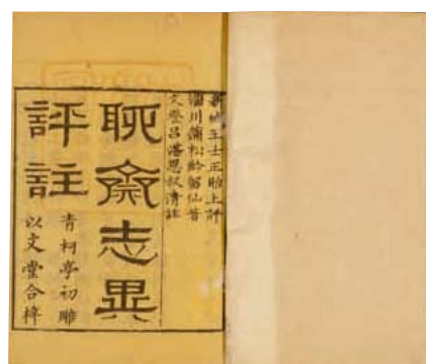 新城王士正貽上評
淄川蒲松齡留仙著
文登呂湛恩叔清註
聊齋志異
評註
青柯亭初雕
以文堂合梓